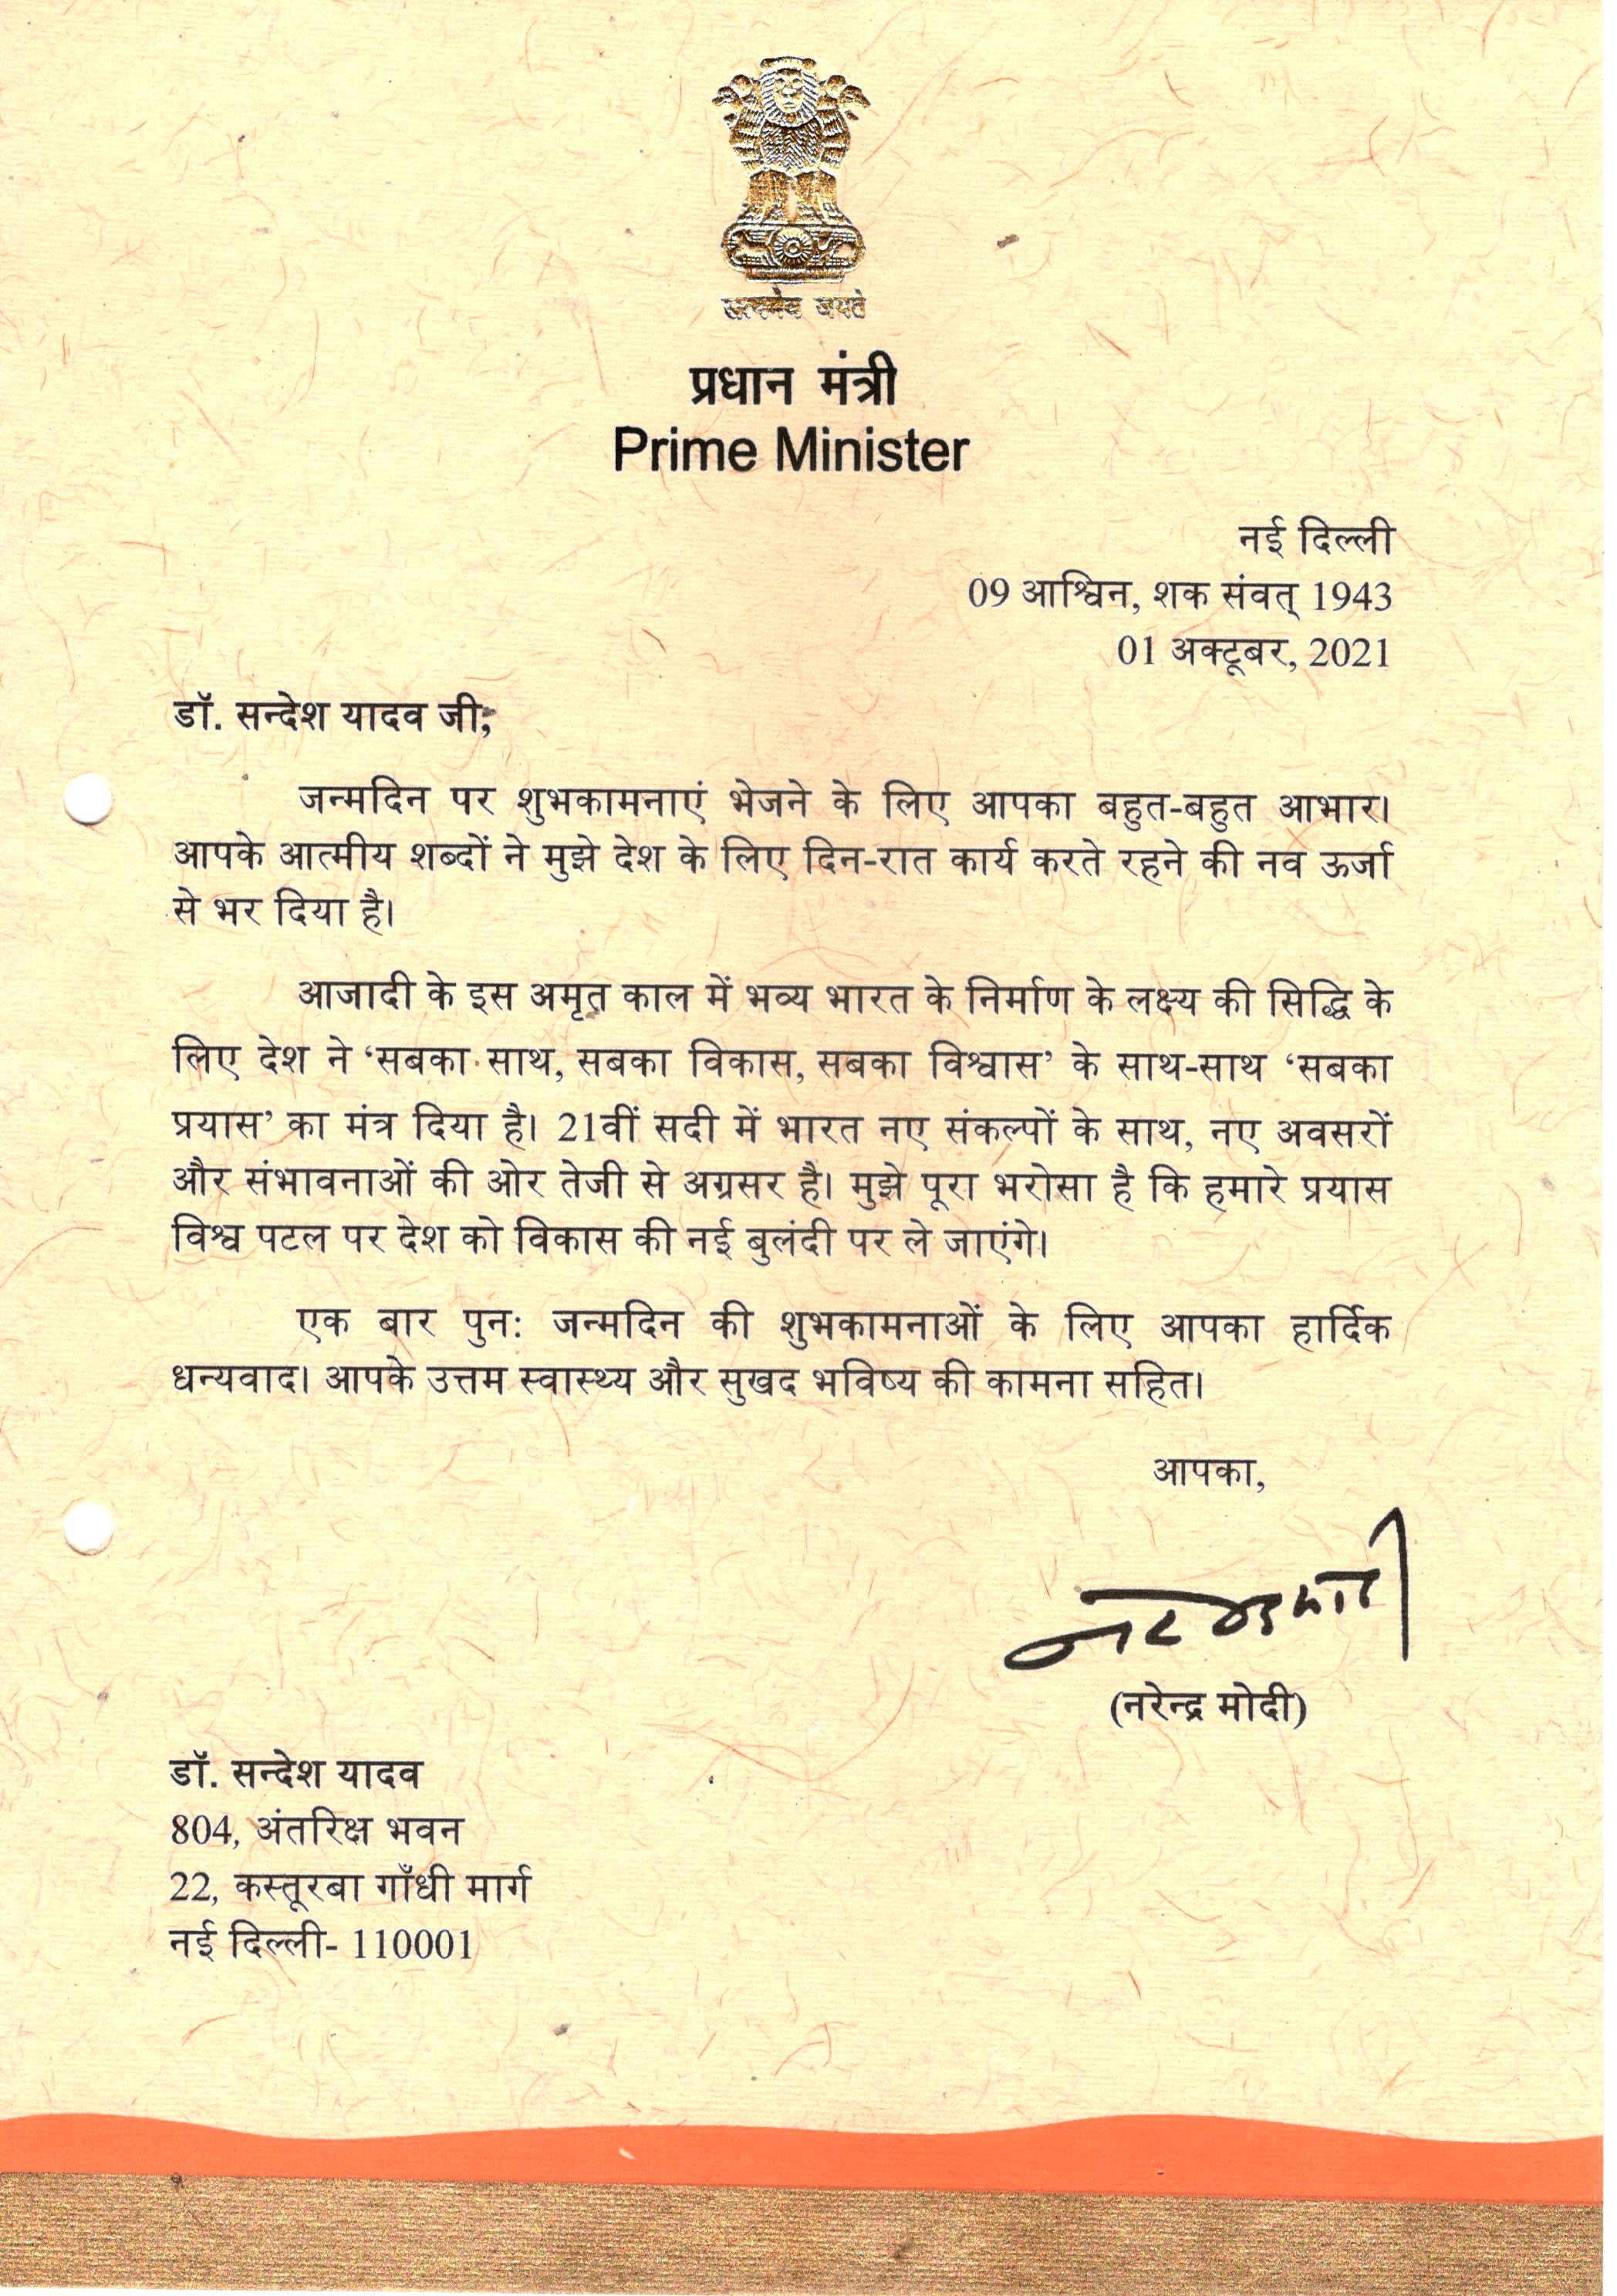 सत्यमेव जयते
प्रधान मंत्री
Prime Minister
नई दिल्ली
09 आश्विन, शक संवत् 1943
01 अक्टूबर, 2021
डॉ. सन्देश यादव जी,
जन्मदिन पर शुभकामनाएं भेजने के लिए आपका बहुत-बहुत आभार।
आपके आत्मीय शब्दों ने मुझे देश के लिए दिन-रात कार्य करते रहने की नव ऊर्जा
से भर दिया है।
आजादी के इस अमृत काल में भव्य भारत के निर्माण के लक्ष्य की सिद्धि के
लिए देश ने ‘सबका साथ, सबका विकास, सबका विश्वास’ के साथ-साथ ‘सबका
प्रयास’ का मंत्र दिया है। 21वीं सदी में भारत नए संकल्पों के साथ, नए अवसरों
और संभावनाओं की ओर तेजी से अग्रसर है। मुझे पूरा भरोसा है कि हमारे प्रयास
विश्व पटल पर देश को विकास की नई बुलंदी पर ले जाएंगे।
एक बार पुन: जन्मदिन की शुभकामनाओं के लिए आपका हार्दिक
धन्यवाद। आपके उत्तम स्वास्थ्य और सुखद भविष्य की कामना सहित।
आपका,
(नरेन्द्र मोदी)
डॉ. सन्देश यादव
804, अंतरिक्ष भवन
22, कस्तूरबा गाँधी मार्ग
नई दिल्ली- 110001